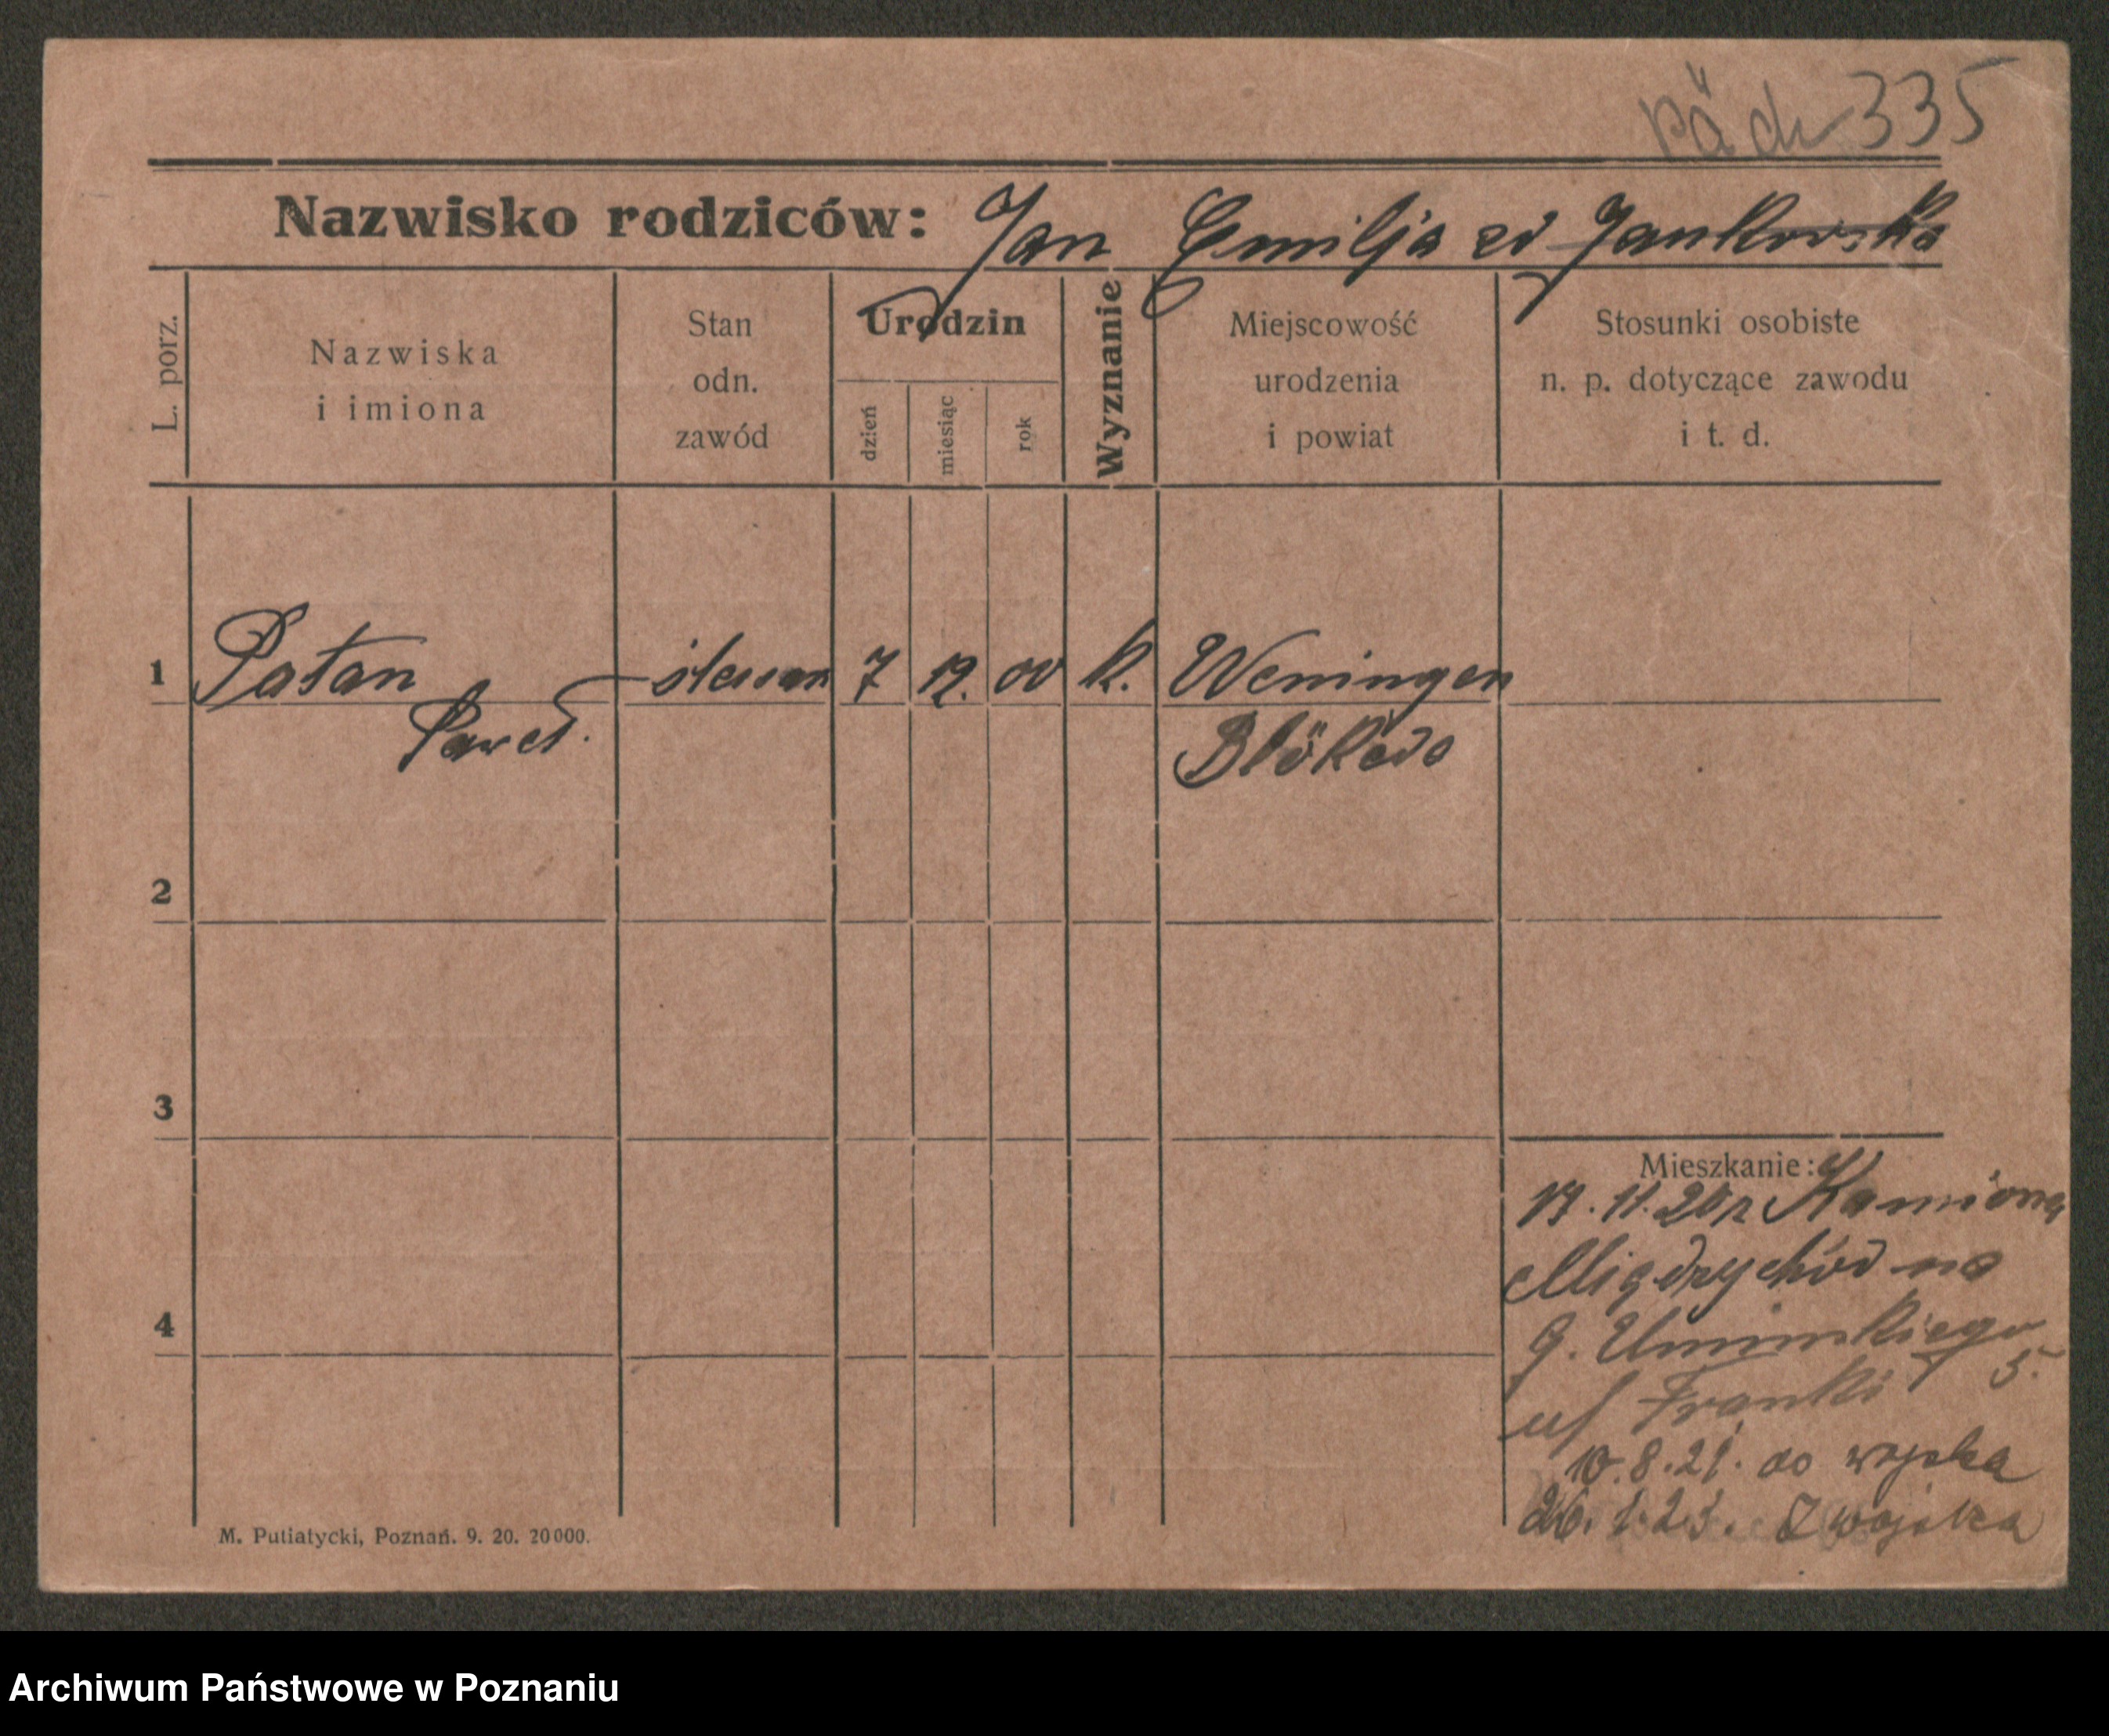 335
Nazwisko rodziców: Jan Emilja zd Jankowska
L. porz.
Nazwiska
i imiona
Stan
odn.
zawód
Urodzin
dzień
miesiąc
rok
Wyznanie
Miejscowość
urodzenia
i powiat
Stosunki osobiste
n. p. dotyczące zawodu
i t. d.
1 Patan 7 12. 00 k. Weningen
Paweł.
Blökede
2
3
Mieszkanie:
11.20r Kamiona
Międzychód na
g. Umińskiego
ul Franki 5.
4
10.8.21. do wojska
26.1.23. Z wojska
M. Putiatycki, Poznań. 9. 20. 20000.
Archiwum Państwowe w Poznaniu